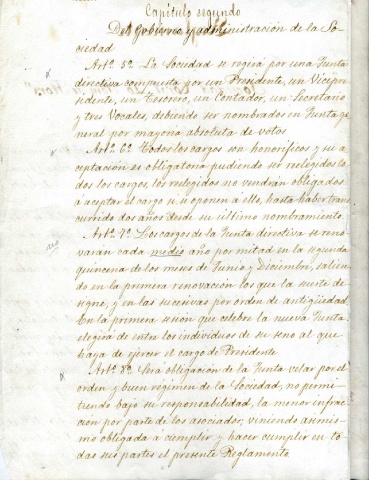 Capítulo segundo
Del gobierno y administración de la So-
ciedad
Artº 5º La Sociedad se regirá por una Junta
directiva compuesta por un Presidente, un Vicepre-
sidente, un Tesorero, un Contador, un Secretario
y tres Vocales, debiendo ser nombrados en Junta ge-
neral por mayoría absoluta de votos
Artº 6º Todos los cargos son honoríficos y su a-
ceptación es obligatoria pudiendo ser reelegidos to-
dos los cargos, los reelegidos no vendrán obligados
á aceptar el cargo si se oponen a ello, hasta haber trans-
currido dos años desde su último nombramiento.
Artº 7º Los cargos de la Junta directiva se reno-
varán cada medio año por mitad en la segunda
quincena de los meses de Junio y Diciembre, salien-
do en la primera renovación los que la suerte de-
signe, y en las sucesivas por orden de antigüedad.
En la primera sesión que celebre la nueva Junta
elegirá de entre los individuos de su seno al que
haya de ejercer el cargo de Presidente
Artº 8º Será obligación de la Junta velar por el
orden y buen régimen de la Sociedad, no permi-
tiendo bajo su responsabilidad, la menor infrac-
ción por parte de los asociados, viniendo asimis-
mo obligada a cumplir y hacer cumplir en to-
das sus partes el presente Reglamento